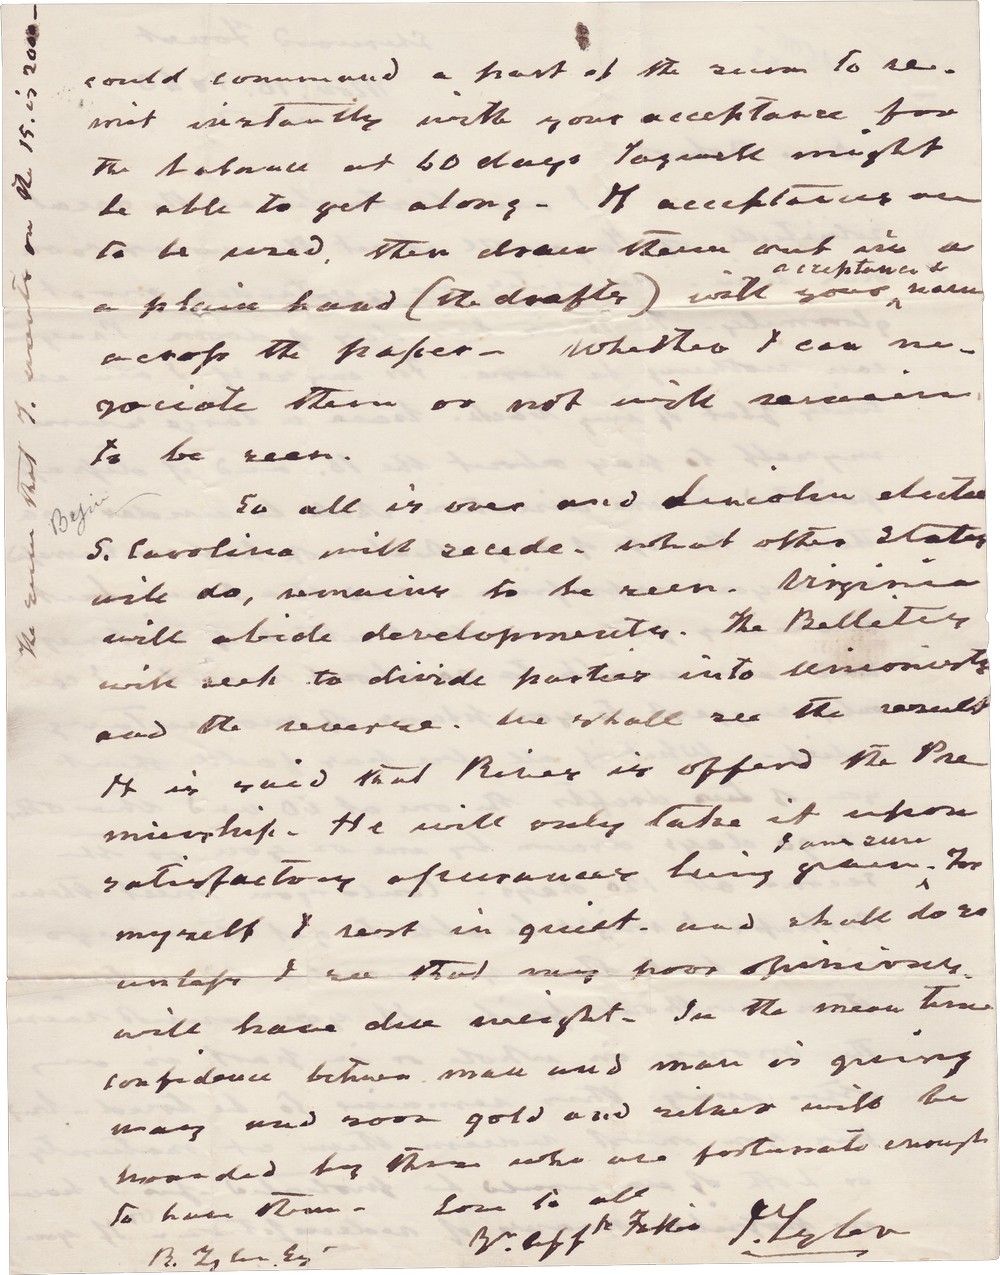 could command a part of the sum to re-
mit instantly with your acceptance for
the balance at 60 days Tazwell might
be able to get along - If acceptances are
to be used, then draw them out in a
a plain hand (the drafts) with your acceptance & name
across the paper - Whether I can ne-
gociate them or not will remain
to be seen.
Begin
So all is over and Lincoln elected
S. Carolina will secede - what other States
will do, remains to be seen. Virginia
will abide developments. The Bellites
will seek to divide parties into Unionists
and the reverse. We shall see the result
It is said that Rives is offerd the Pre
miership - He will only take it upon
satisfactory assurances being given I am sure. For
myself I rest in quiet - and shall do so
unless I see that my poor opinions
will have due weight - In the mean time
confidence between man and man is giving
way and soon gold and silver will be
hoarded by those who are fortunate enough
to have them - Love to all
Yr. affte Father J. Tyler
R. Tyler Esqr
The sum that T. wants on the 15. is 2000 -